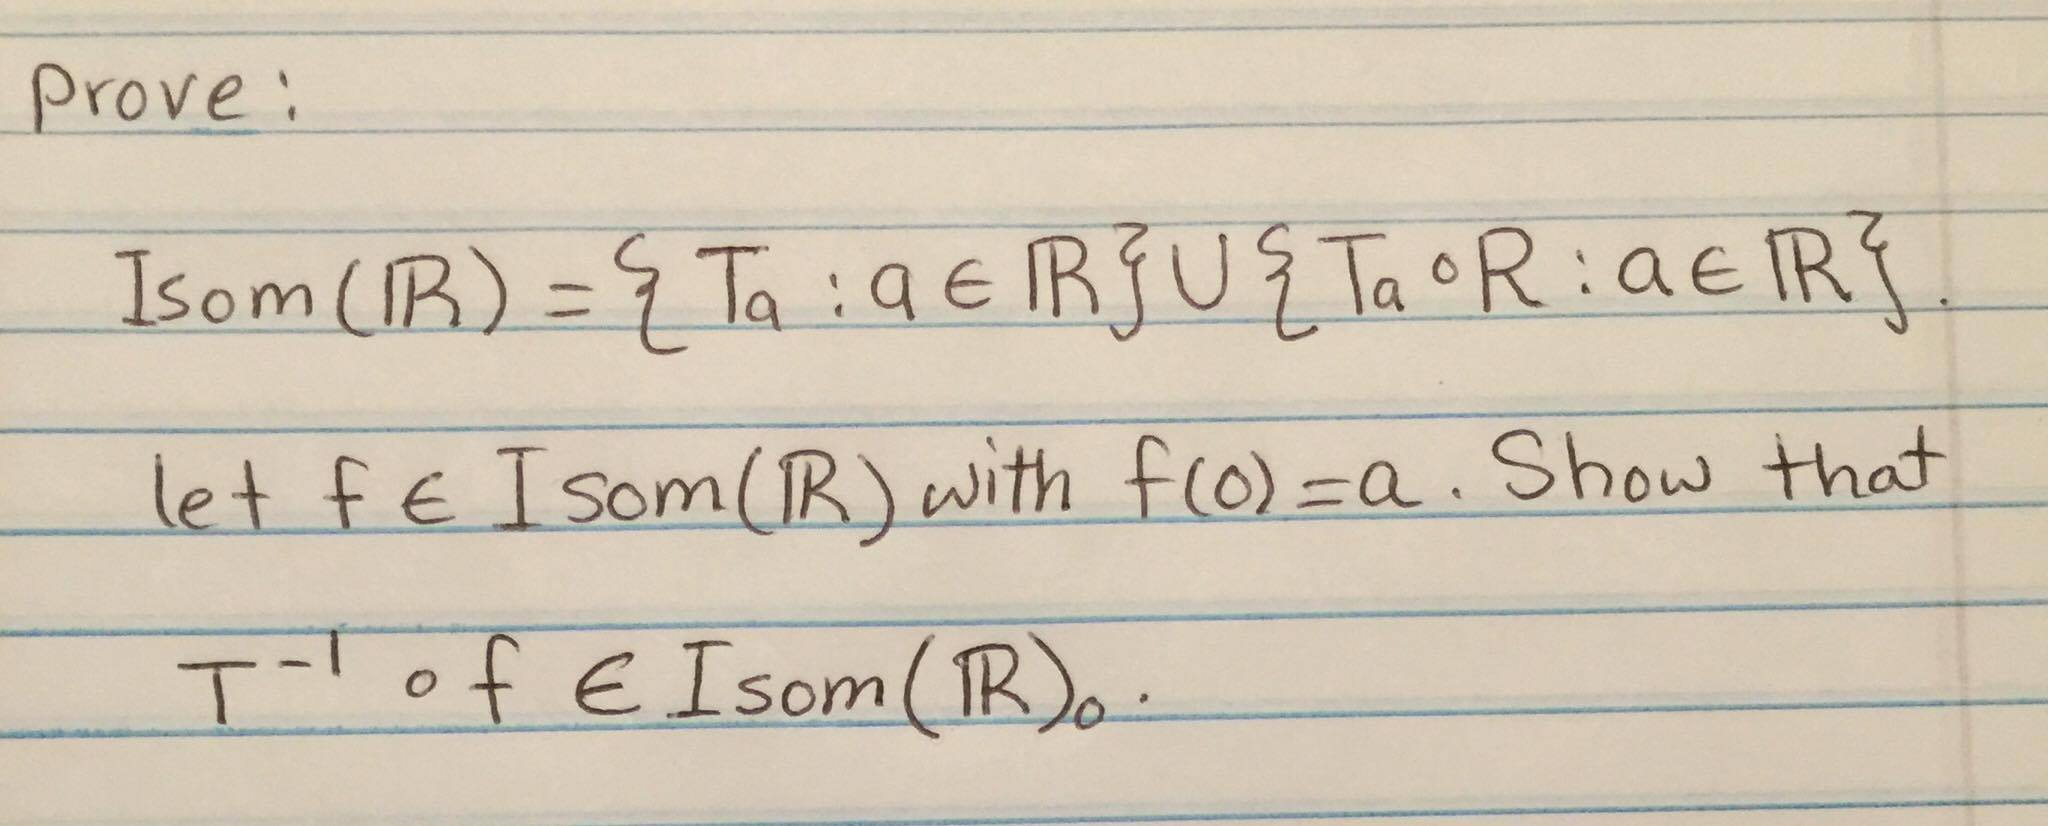 Prove:
Isom(ℝ) = { Ta : a ∈ ℝ} ∪ { Ta ∘ R : a ∈ ℝ}.
let f ∈ Isom(ℝ) with f(0) = a. Show that
T⁻¹ ∘ f ∈ Isom(ℝ)₀.